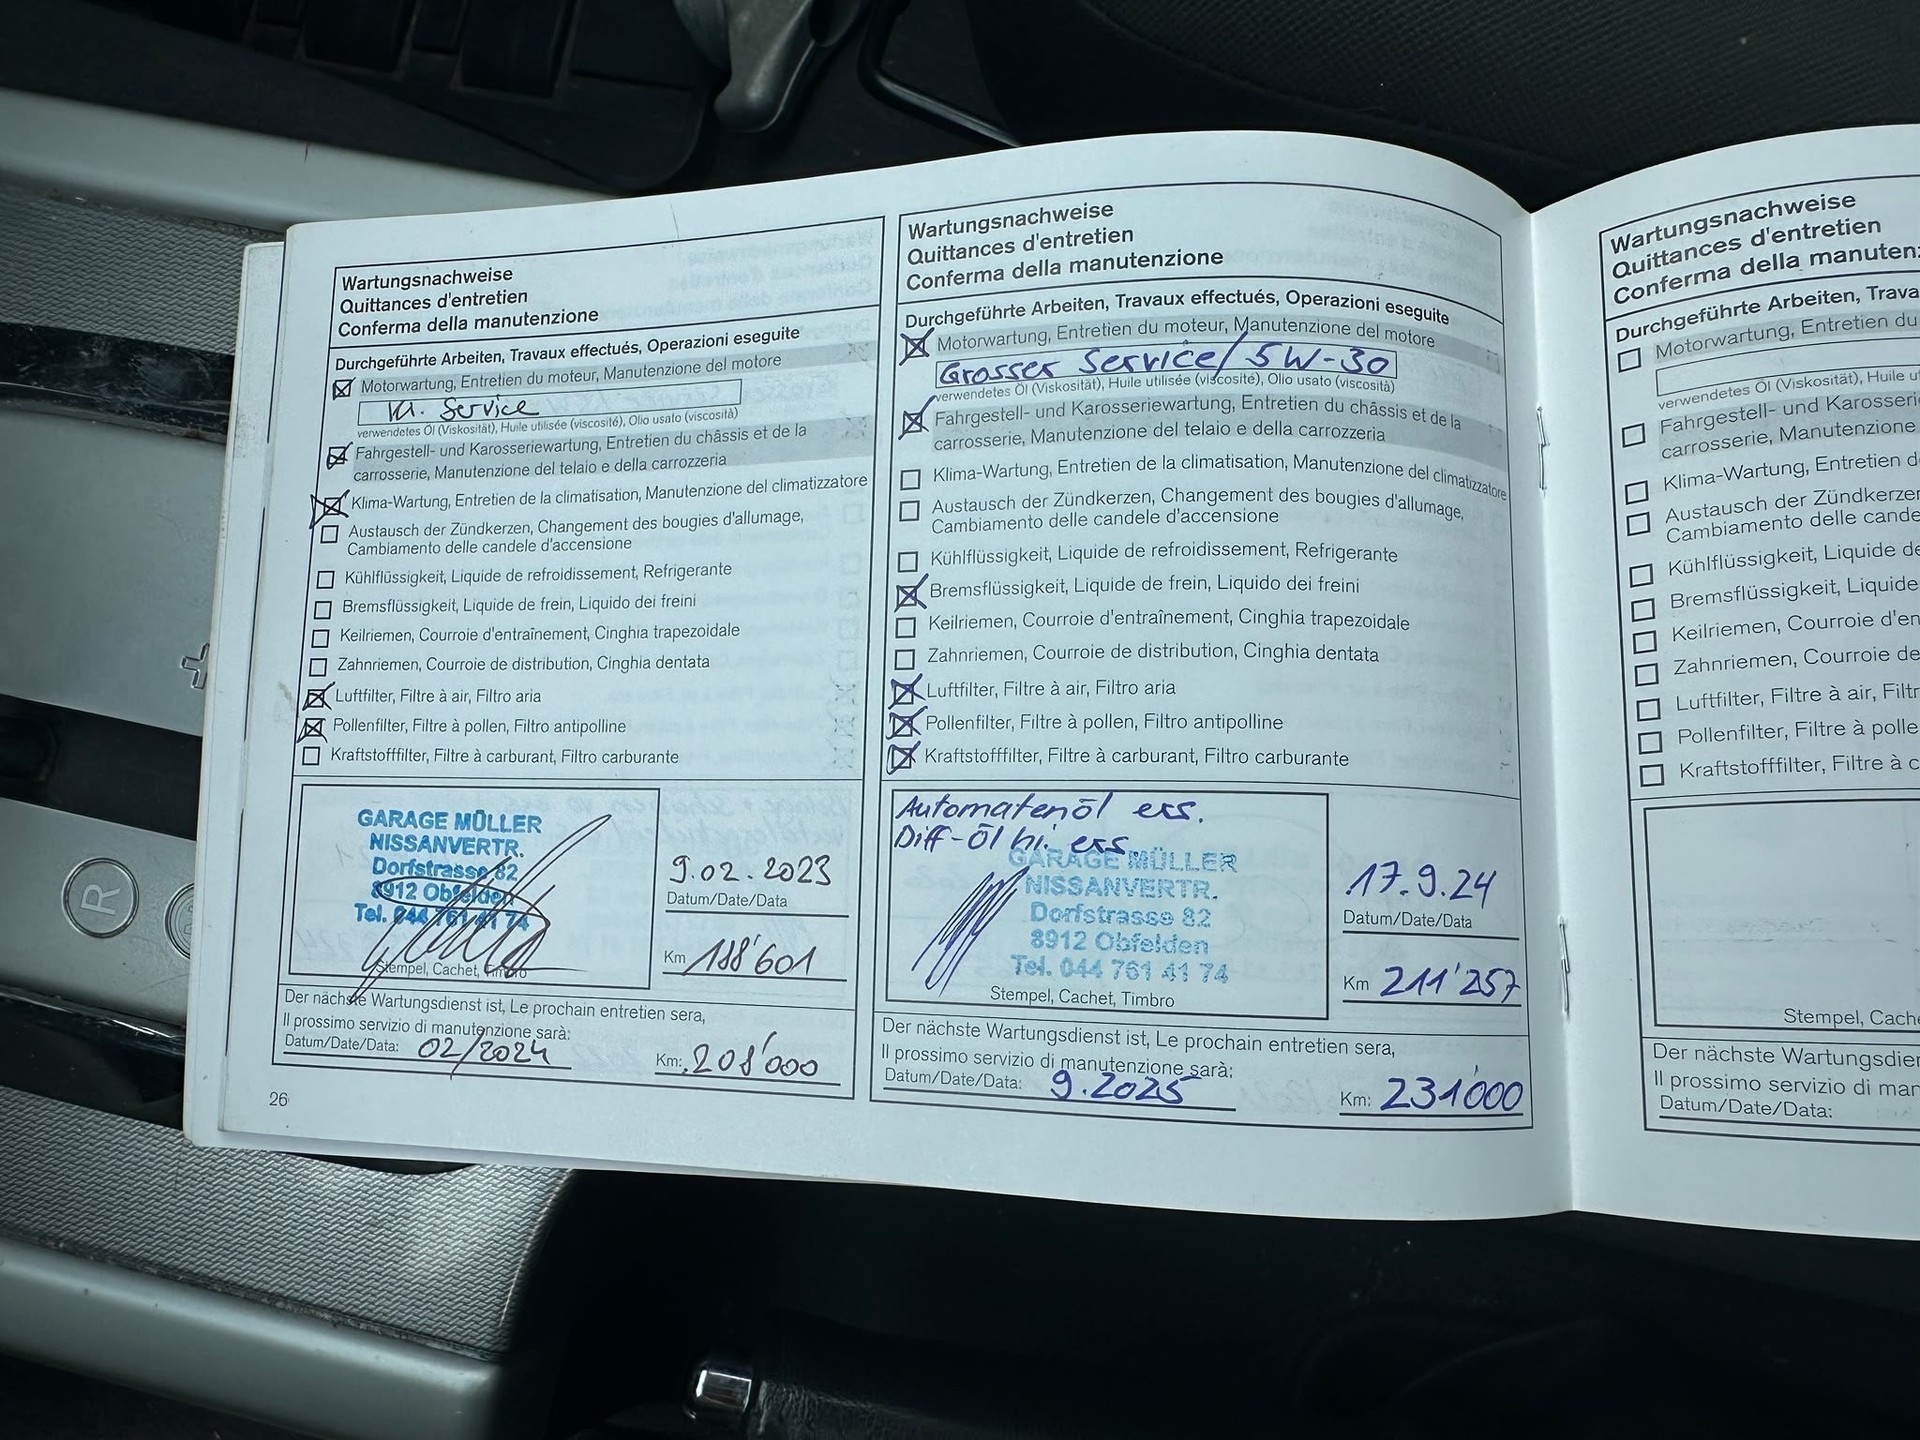 Wartungsnachweise
Quittances d'entretien
Conferma della manutenzione
Durchgeführte Arbeiten, Travaux effectués, Operazioni eseguite
Motorwartung, Entretien du moteur, Manutenzione del motore
Kl. Service
verwendetes Öl (Viskosität), Huile utilisée (viscosité), Olio usato (viscosità)
Fahrgestell- und Karosseriewartung, Entretien du châssis et de la
carrosserie, Manutenzione del telaio e della carrozzeria
Klima-Wartung, Entretien de la climatisation, Manutenzione del climatizzatore
Austausch der Zündkerzen, Changement des bougies d'allumage,
Cambiamento delle candele d'accensione
Kühlflüssigkeit, Liquide de refroidissement, Refrigerante
Bremsflüssigkeit, Liquide de frein, Liquido dei freini
Keilriemen, Courroie d'entraînement, Cinghia trapezoidale
Zahnriemen, Courroie de distribution, Cinghia dentata
Luftfilter, Filtre à air, Filtro aria
Pollenfilter, Filtre à pollen, Filtro antipolline
Kraftstofffilter, Filtre à carburant, Filtro carburante
GARAGE MÜLLER
NISSANVERTR.
Dorfstrasse 82
8912 Obfelden
Tel. 044 761 41 74
Stempel, Cachet, Timbro
9.02.2023
Datum/Date/Data
Km 188'601
Der nächste Wartungsdienst ist, Le prochain entretien sera,
Il prossimo servizio di manutenzione sarà:
Datum/Date/Data: 02/2024 Km: 208'000
26
Wartungsnachweise
Quittances d'entretien
Conferma della manutenzione
Durchgeführte Arbeiten, Travaux effectués, Operazioni eseguite
Motorwartung, Entretien du moteur, Manutenzione del motore
Grosser Service/ 5W-30
verwendetes Öl (Viskosität), Huile utilisée (viscosité), Olio usato (viscosità)
Fahrgestell- und Karosseriewartung, Entretien du châssis et de la
carrosserie, Manutenzione del telaio e della carrozzeria
Klima-Wartung, Entretien de la climatisation, Manutenzione del climatizzatore
Austausch der Zündkerzen, Changement des bougies d'allumage,
Cambiamento delle candele d'accensione
Kühlflüssigkeit, Liquide de refroidissement, Refrigerante
Bremsflüssigkeit, Liquide de frein, Liquido dei freini
Keilriemen, Courroie d'entraînement, Cinghia trapezoidale
Zahnriemen, Courroie de distribution, Cinghia dentata
Luftfilter, Filtre à air, Filtro aria
Pollenfilter, Filtre à pollen, Filtro antipolline
Kraftstofffilter, Filtre à carburant, Filtro carburante
Automatenöl ers.
Diff-Öl hi. ers.
GARAGE MÜLLER
NISSANVERTR.
Dorfstrasse 82
8912 Obfelden
Tel. 044 761 41 74
Stempel, Cachet, Timbro
17.9.24
Datum/Date/Data
Km 211'257
Der nächste Wartungsdienst ist, Le prochain entretien sera,
Il prossimo servizio di manutenzione sarà:
Datum/Date/Data: 9.2025 Km: 231'000
Wartungsnachweise
Quittances d'entretien
Conferma della manuten
Durchgeführte Arbeiten, Trava
Motorwartung, Entretien du
verwendetes Öl (Viskosität), Huile u
Fahrgestell- und Karosseri
carrosserie, Manutenzione
Klima-Wartung, Entretien d
Austausch der Zündkerzer
Cambiamento delle cande
Kühlflüssigkeit, Liquide de
Bremsflüssigkeit, Liquide
Keilriemen, Courroie d'en
Zahnriemen, Courroie de
Luftfilter, Filtre à air, Filtr
Pollenfilter, Filtre à polle
Kraftstofffilter, Filtre à c
Stempel, Cache
Der nächste Wartungsdier
Il prossimo servizio di mar
Datum/Date/Data:
R
+